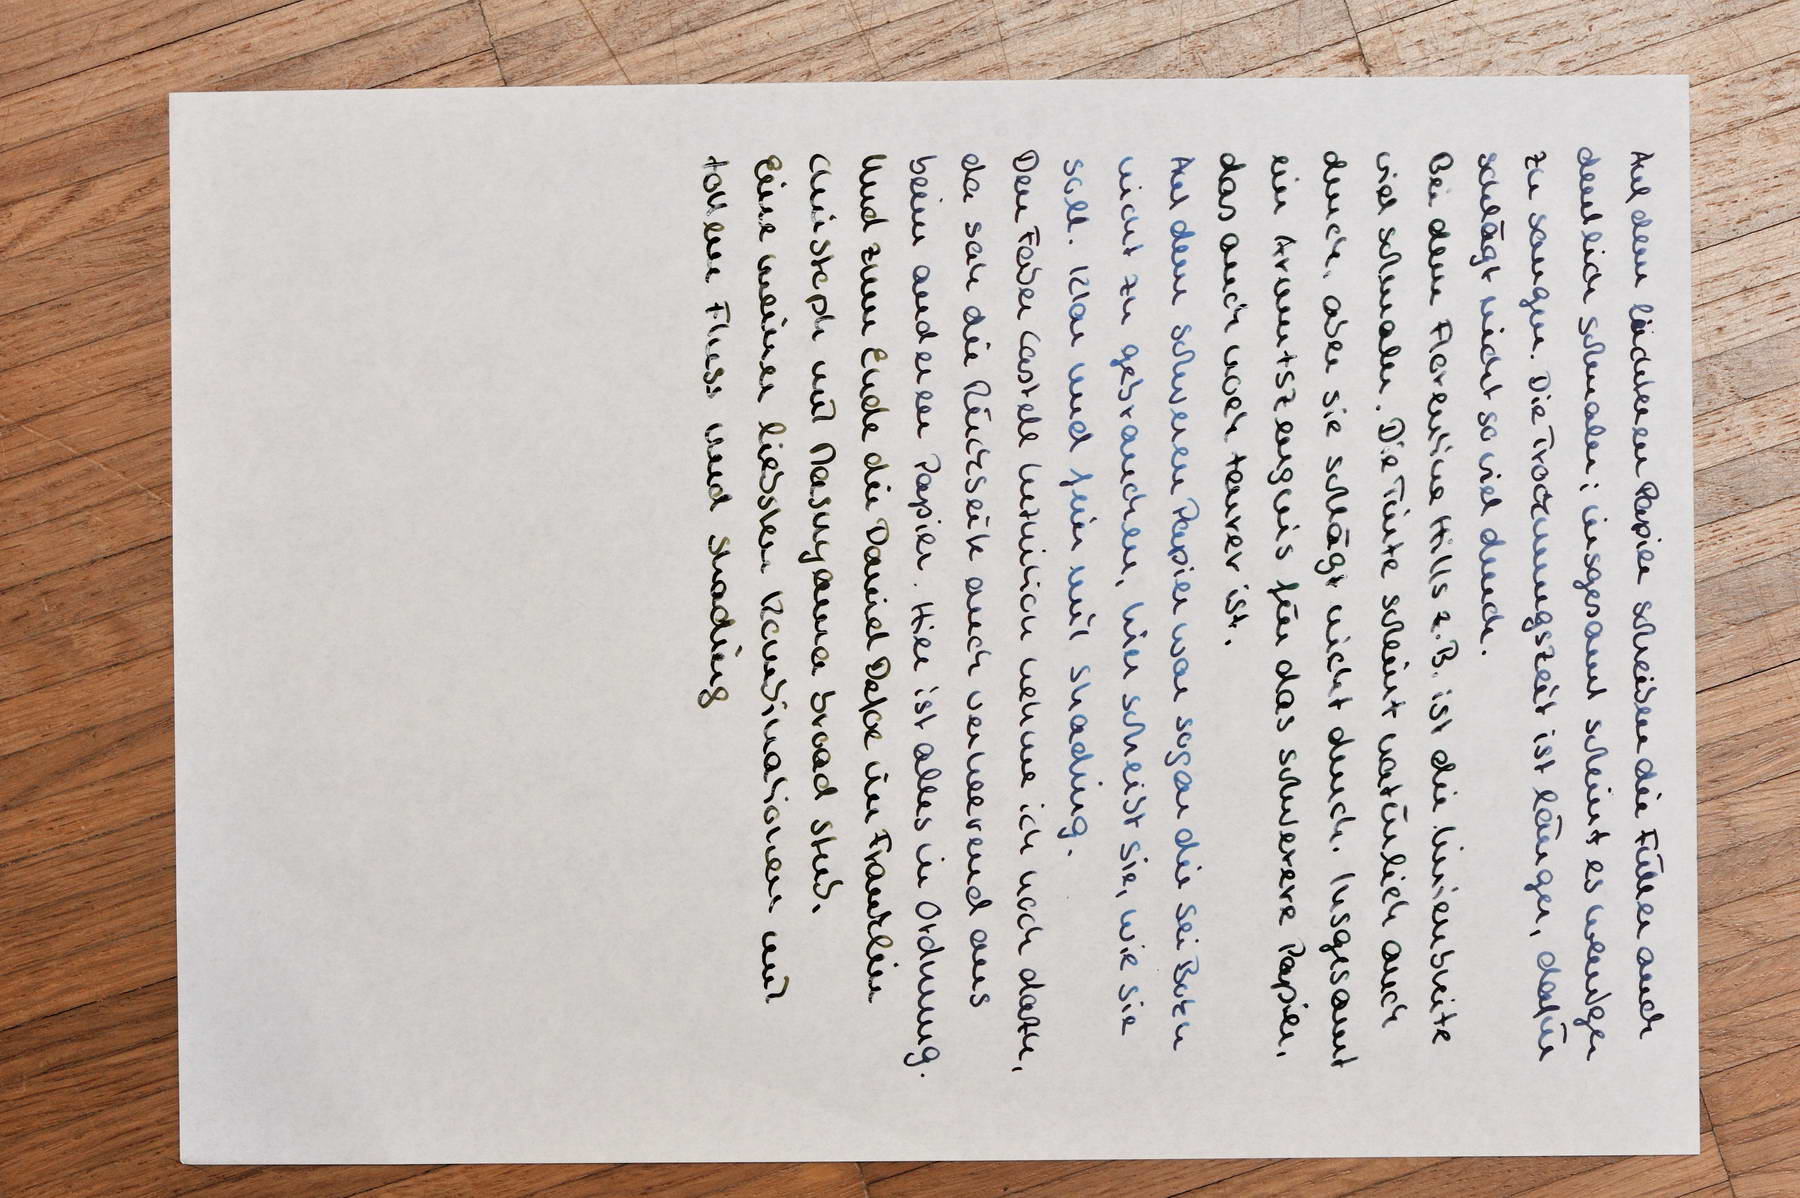 Auf dem leichteren Papier schreiben die Füller auch
deutlich schmaler; insgesamt scheint es weniger
zu saugen. Die Trocknungszeit ist länger, dafür
schlägt nicht so viel durch.
Bei dem Florentine Hills z.B. ist die Linienbreite
viel schmaler. Die Tinte scheint natürlich auch
durch, aber sie schlägt nicht durch. Insgesamt
ein Armutszeugnis für das schwerere Papier,
das auch noch teurer ist.
Auf dem schweren Papier war sogar die
nicht zu gebrauchen, hier schreibt sie, wie sie
soll. Klar und fein mit shading.
Den Faber Castell nehme ich noch dazu,
da sah die Rückseite auch verheerend aus
beim anderen Papier. Hier ist alles in Ordnung.
Und zum Ende die Daniel Defoe im Franklin
Christoph mit Masuyama broad stub.
Eine meiner liebsten Kombinationen mit
tollem Fluss und shading